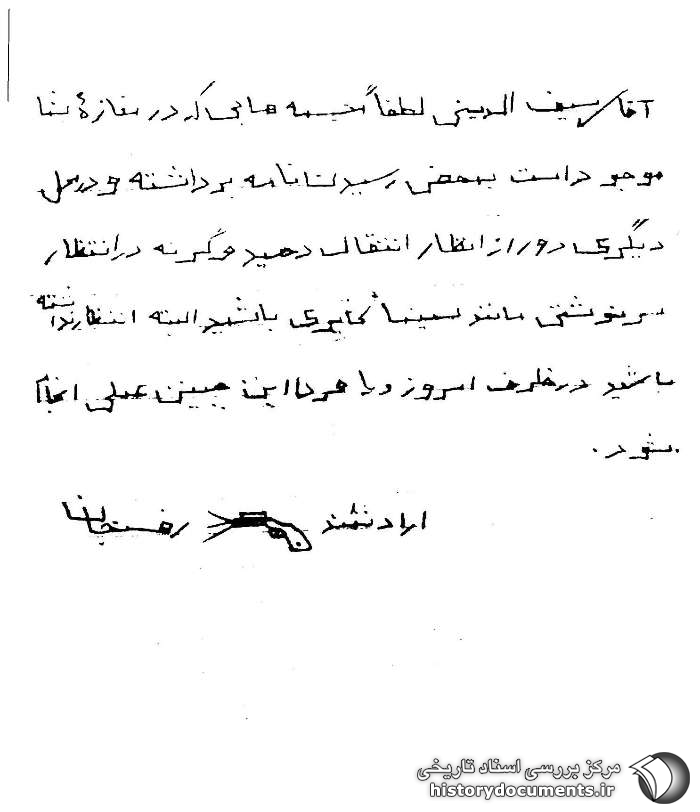 آقای سیف الدینی لطفاً مجسمه هایی که در مغازهٔ شما
موجود است بمحض رسیدن نامه برداشته و در محل
دیگری دور از انظار انتقال دهید وگرنه در انتظار
سرنوشتی مانند سینما باشید البته انتظار نداشته
باشید در ظرف امروز و یا فردا این چنین عملی انجام
بشود.
ارادتمند رفسنجان
مرکز بررسی اسناد تاریخی
historydocuments.ir